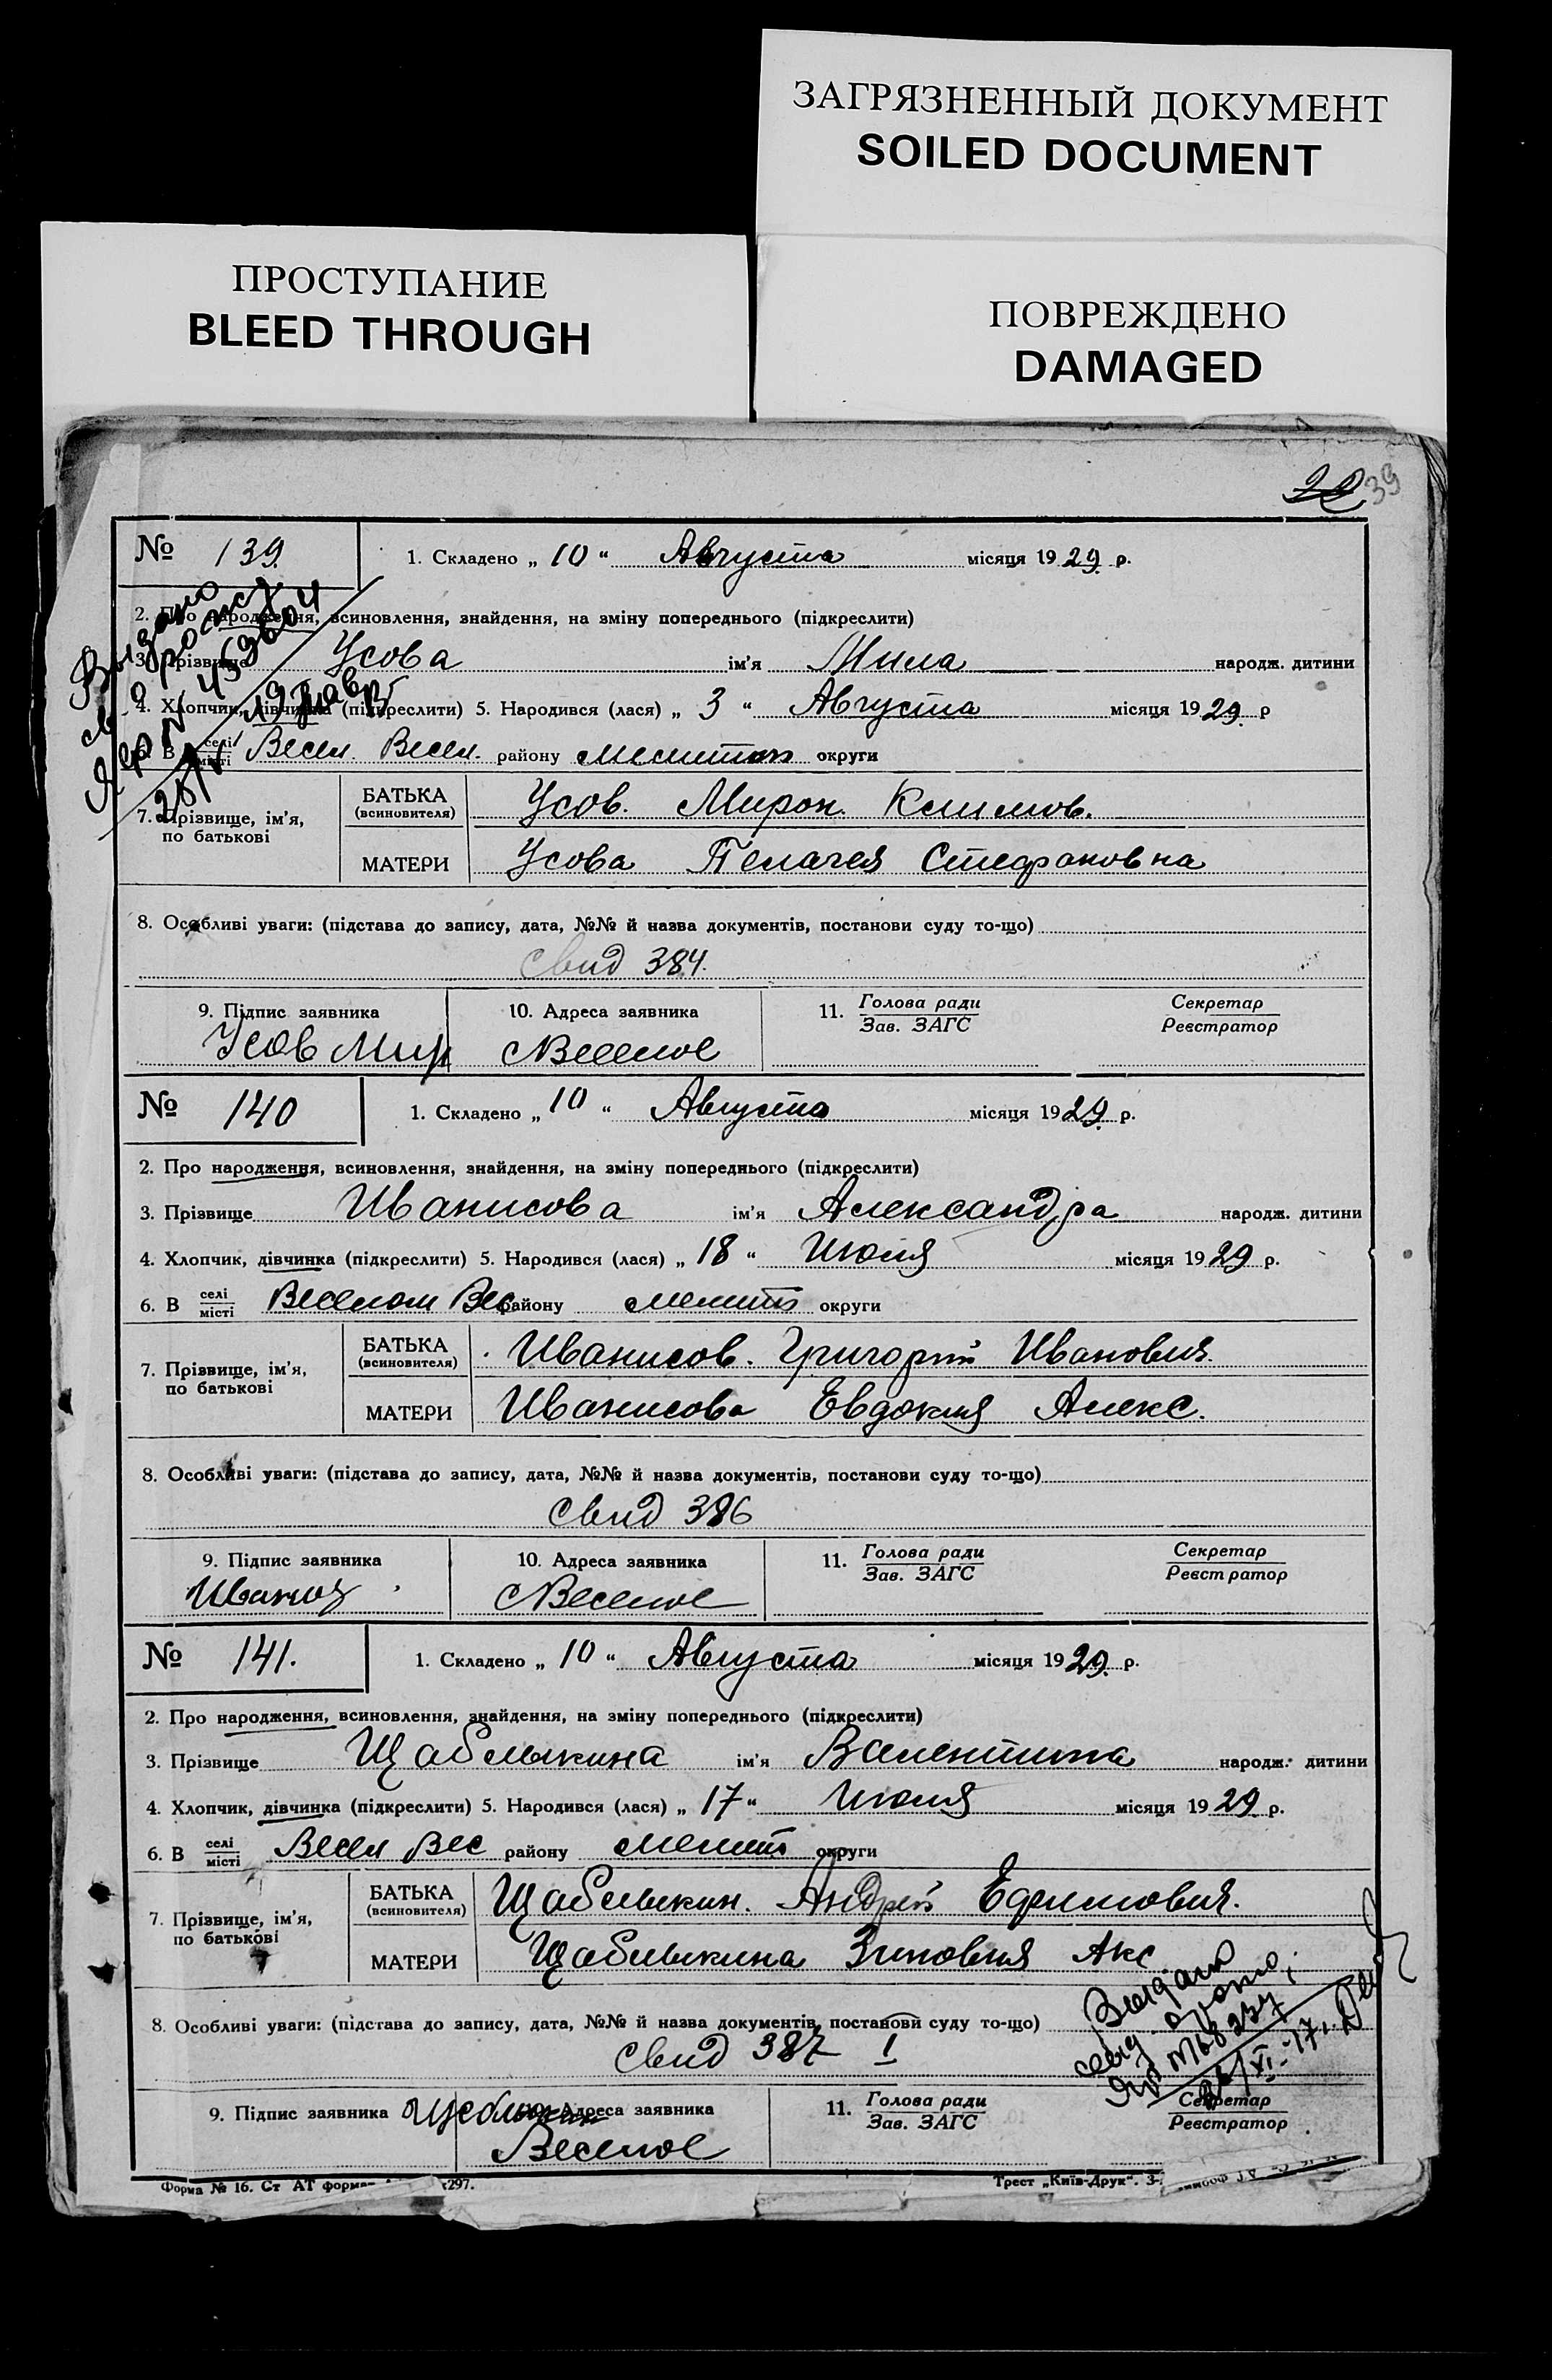 ЗАГРЯЗНЕННЫЙ ДОКУМЕНТ
SOILED DOCUMENT
ПРОСТУПАНИЕ
BLEED THROUGH
ПОВРЕЖДЕНО
DAMAGED
39
№ 139. 1. Складено „ 10 “ Августа місяця 1929. р.
2. Про народження, всиновлення, знайдення, на зміну попереднього (підкреслити)
3. Прізвище Усова ім'я Мила народж. дитини
4. Хлопчик, дівчинка (підкреслити) 5. Народився (лася) „ 3 “ Августа місяця 1929. р
6. В селі місті Весел. Весел. району мелитоп округи
7. Прізвище, ім'я, по батькові
БАТЬКА (всиновителя) Усов. Мирон. Климов.
МАТЕРИ Усова Пелагея Стефановна
8. Особливі уваги: (підстава до запису, дата, №№ й назва документів, постанови суду то-що)
свид 384.
9. Підпис заявника 10. Адреса заявника 11. Голова ради Зав. ЗАГС Секретар Реєстратор
Усов Мир с Веселое
Выдано
№ 140 1. Складено „ 10 “ Августа місяця 1929. р.
2. Про народження, всиновлення, знайдення, на зміну попереднього (підкреслити)
3. Прізвище Иванисова ім'я Александра народж. дитини
4. Хлопчик, дівчинка (підкреслити) 5. Народився (лася) „ 18 “ Июля місяця 1929 р.
6. В селі місті Веселом Вес району мелит округи
7. Прізвище, ім'я, по батькові
БАТЬКА (всиновителя) Иванисов. Григорий Иванович.
МАТЕРИ Иванисова Евдокия Алекс.
8. Особливі уваги: (підстава до запису, дата, №№ й назва документів, постанови суду то-що)
свид 386
9. Підпис заявника 10. Адреса заявника 11. Голова ради Зав. ЗАГС Секретар Реєстратор
с Веселое
№ 141. 1. Складено „ 10 “ Августа місяця 1929. р.
2. Про народження, всиновлення, знайдення, на зміну попереднього (підкреслити)
3. Прізвище Щабелькина ім'я Валентина народж. дитини
4. Хлопчик, дівчинка (підкреслити) 5. Народився (лася) „ 17 “ Июля місяця 1929 р.
6. В селі місті Весел Вес району мелит округи
7. Прізвище, ім'я, по батькові
БАТЬКА (всиновителя) Щабелькин. Андрей Ефимович.
МАТЕРИ Щабелькина Зиновия Акс
8. Особливі уваги: (підстава до запису, дата, №№ й назва документів, постанови суду то-що)
свид 387 I
Выдано
9. Підпис заявника 10. Адреса заявника 11. Голова ради Зав. ЗАГС Секретар Реєстратор
Веселое
Форма № 16. Ст АТ форма 297. Трест „Київ-Друк“. З-